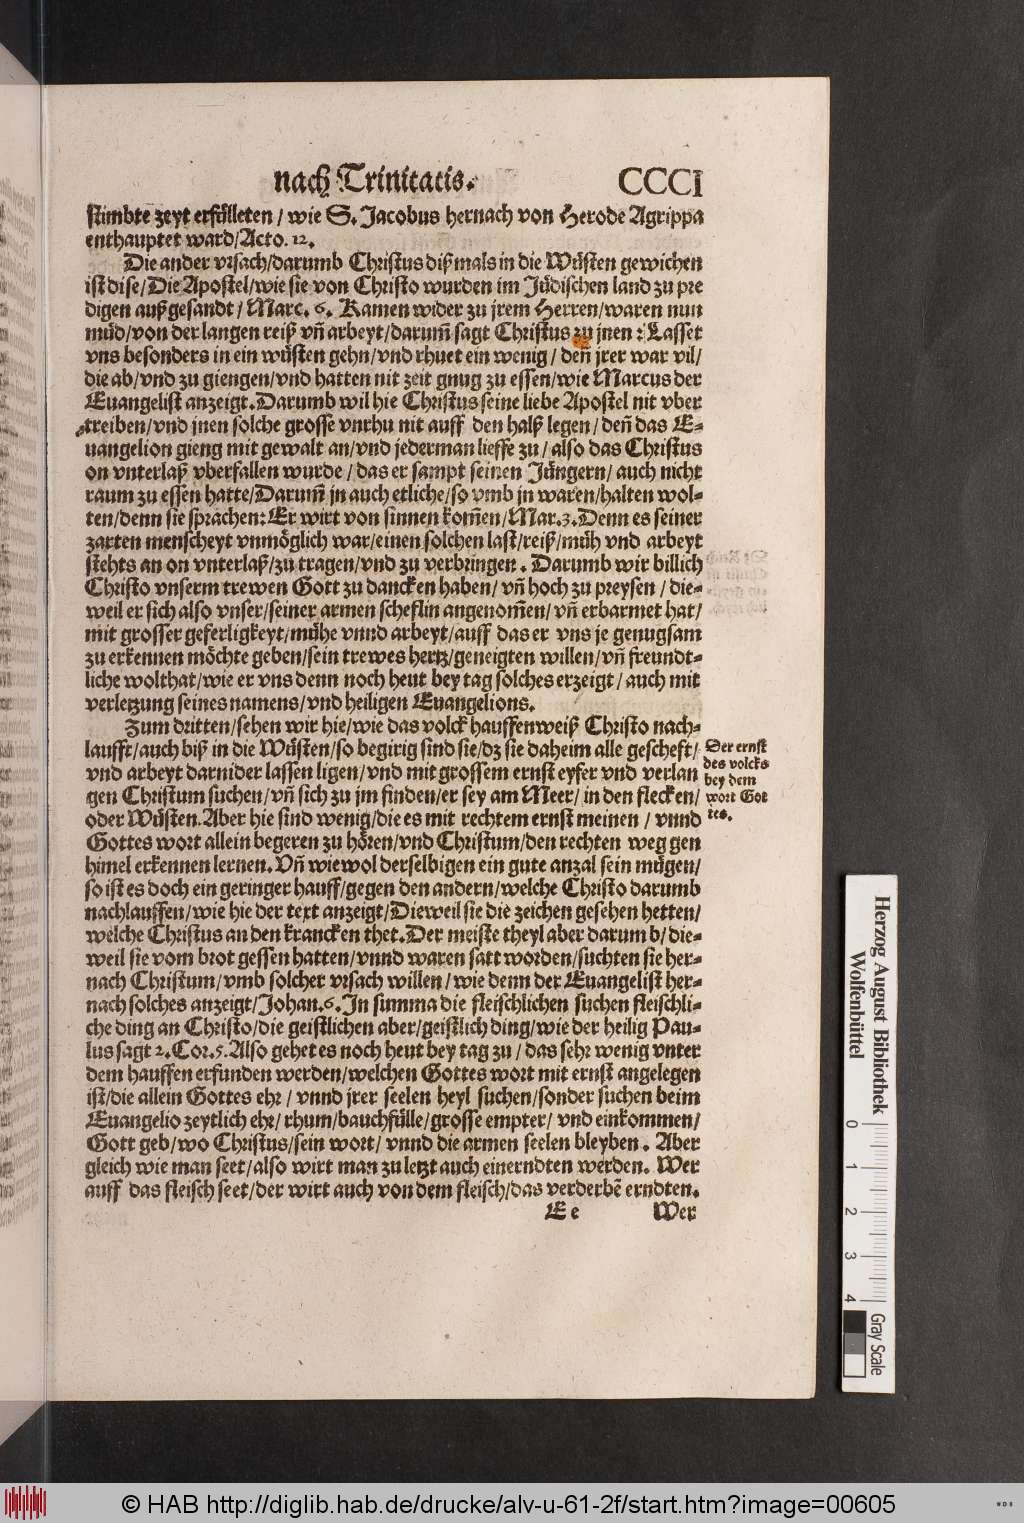 nach Trinitatis. CCCI
stimbte zeyt erfülleten / wie S. Jacobus hernach von Herode Agrippa
enthauptet ward/Acto. 12.
Die ander vrsach/darumb Christus diß mals in die Wüsten gewichen
ist dise/Die Apostel/wie sie von Christo wurden im Jüdischen land zu pre
digen außgesandt / Marc. 6. Kamen wider zu jrem Herren/waren nun
müd/von der langen reiß vñ arbeyt/darum̃ sagt Christus zu jnen : Lasset
vns besonders in ein wüsten gehn/vnd rhuet ein wenig / deñ jrer war vil/
die ab/vnd zu giengen/vnd hatten nit zeit gnug zu essen/wie Marcus der
Euangelist anzeigt. Darumb wil hie Christus seine liebe Apostel nit vber
treiben/vnd jnen solche grosse vnrhu nit auff den halß legen / deñ das E-
uangelion gieng mit gewalt an/vnd jederman lieffe zu / also das Christus
on vnterlaß vberfallen wurde / das er sampt seinen Jüngern / auch nicht
raum zu essen hatte/Darum̃ jn auch etliche/so vmb jn waren/halten wol-
ten/denn sie sprachen: Er wirt von sinnen kom̃en/Mar.3. Denn es seiner
zarten menscheyt vnmöglich war/einen solchen last/reiß/müh vnd arbeyt
stehts an on vnterlaß/zu tragen/vnd zu verbringen . Darumb wir billich
Christo vnserm trewen Gott zu dancken haben/ vñ hoch zu preysen / die-
weil er sich also vnser/seiner armen scheflin angenom̃en/ vñ erbarmet hat/
mit grosser geferligkeyt/mühe vnnd arbeyt/auff das er vns je genugsam
zu erkennen möchte geben/sein trewes hertz/geneigten willen/vñ freundt-
liche wolthat/wie er vns denn noch heut bey tag solches erzeigt / auch mit
verletzung seines namens/vnd heiligen Euangelions.
Zum dritten/sehen wir hie/wie das volck hauffenweiß Christo nach-
laufft/auch biß in die Wüsten/so begirig sind sie/dz sie daheim alle gescheft/
vnd arbeyt darnider lassen ligen/vnd mit grossem ernst eyfer vnd verlan
gen Christum suchen/vñ sich zu jm finden/er sey am Meer/ in den flecken/
oder Wüsten. Aber hie sind wenig/die es mit rechtem ernst meinen / vnnd
Gottes wort allein begeren zu hören/vnd Christum/den rechten weg gen
himel erkennen lernen. Vñ wiewol derselbigen ein gute anzal sein mügen/
so ist es doch ein geringer hauff/gegen den andern/welche Christo darumb
nachlauffen/wie hie der text anzeigt/Dieweil sie die zeichen gesehen hetten/
welche Christus an den krancken thet. Der meiste theyl aber darumb/die-
weil sie vom brot gessen hatten/vnnd waren satt worden/suchten sie her-
nach Christum/vmb solcher vrsach willen / wie denn der Euangelist her-
nach solches anzeigt/Johan. 6. In summa die fleischlichen suchen fleischli-
che ding an Christo/die geistlichen aber/geistlich ding/wie der heilig Pau-
lus sagt 2. Cor. 5. Also gehet es noch heut bey tag zu / das sehr wenig vnter
dem hauffen erfunden werden/welchen Gottes wort mit ernst angelegen
ist/die allein Gottes ehr / vnnd jrer seelen heyl suchen/sonder suchen beim
Euangelio zeytlich ehr/ rhum/bauchfülle/grosse empter/ vnd einkommen/
Gott geb/wo Christus/sein wort/ vnnd die armen seelen bleyben . Aber
gleich wie man seet/also wirt man zu letzt auch einerndten werden. Wer
auff das fleisch seet/der wirt auch von dem fleisch/das verderbẽ erndten.
E e Wer
Der ernst
des volcks
bey dem
wort Got
tes.
Herzog August Bibliothek
Wolfenbüttel
0 1 2 3 4
Gray Scale
© HAB http://diglib.hab.de/drucke/alv-u-61-2f/start.htm?image=00605